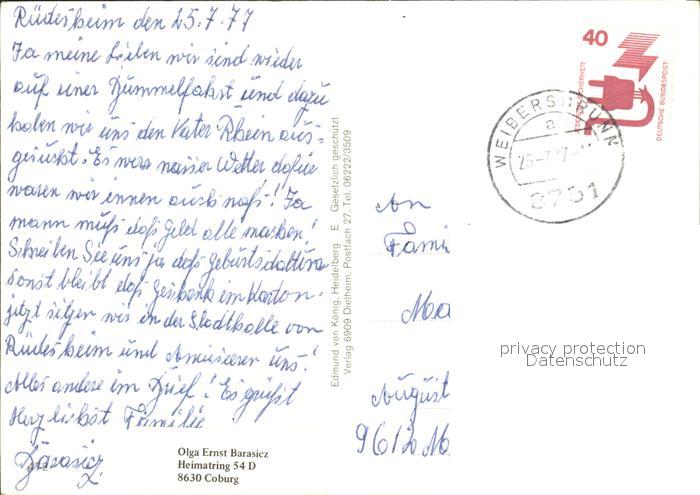 Rüdesheim den 25.7.77
Ja meine Lieben wir sind wieder
auf einer Bummelfahrt und dazu
haben wir uns den Vater Rhein aus-
gesucht. Es war nasser Wetter dafür
waren wir innen auch naß! Ja
mann muß daß Geld alle machen!
Schreiben Sie uns ja daß Geburtsdattum
sonst bleibt daß Geschenk im Karton.
jetzt sitzen wir in der Stadthalle von
Rüdesheim und Amüsieren uns!
Alles andere im Brief! Es grüßt
Herzlichst Familie
Barasicz
Olga Ernst Barasicz
Heimatring 54 D
8630 Coburg
Edmund von König, Heidelberg E Gesetzlich geschützt
Verlag 6909 Dielheim, Postfach 27, Tel. 06222/3509
40
DEUTSCHE BUNDESPOST
WEIBERSBRUNN
a
8751
An
Fami
Ma
August
privacy protection
Datenschutz